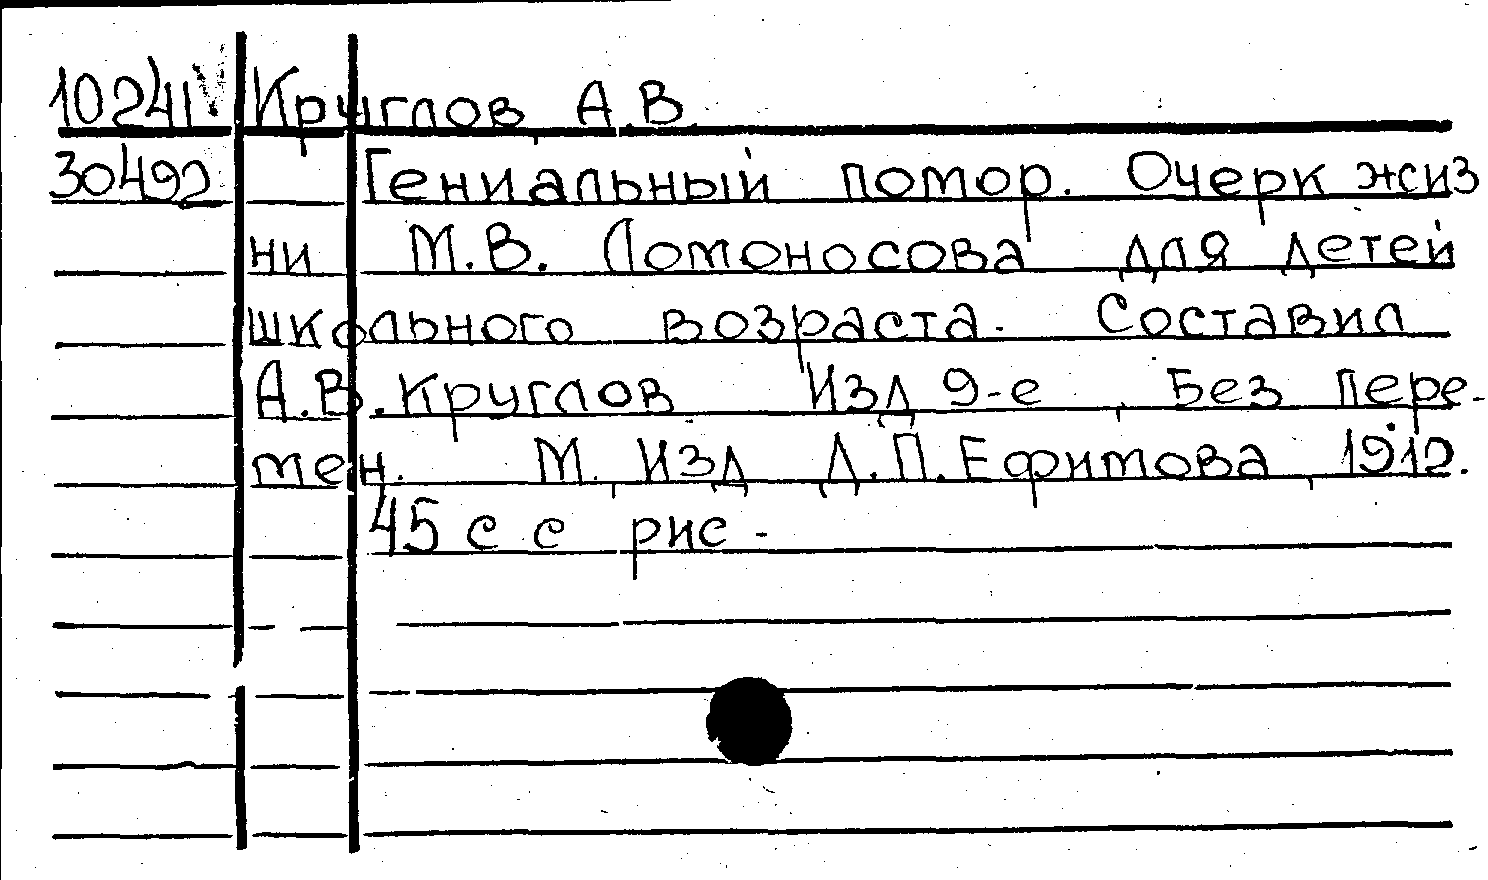 10241 Круглов, А.В.
30492 Гениальный помор. Очерк жиз
ни М.В. Ломоносова для детей
школьного возраста. Составил
А.В. Круглов Изд 9-е, Без пере-
мен. М., Изд Д.П. Ефимова, 1912.
45 с с рис.